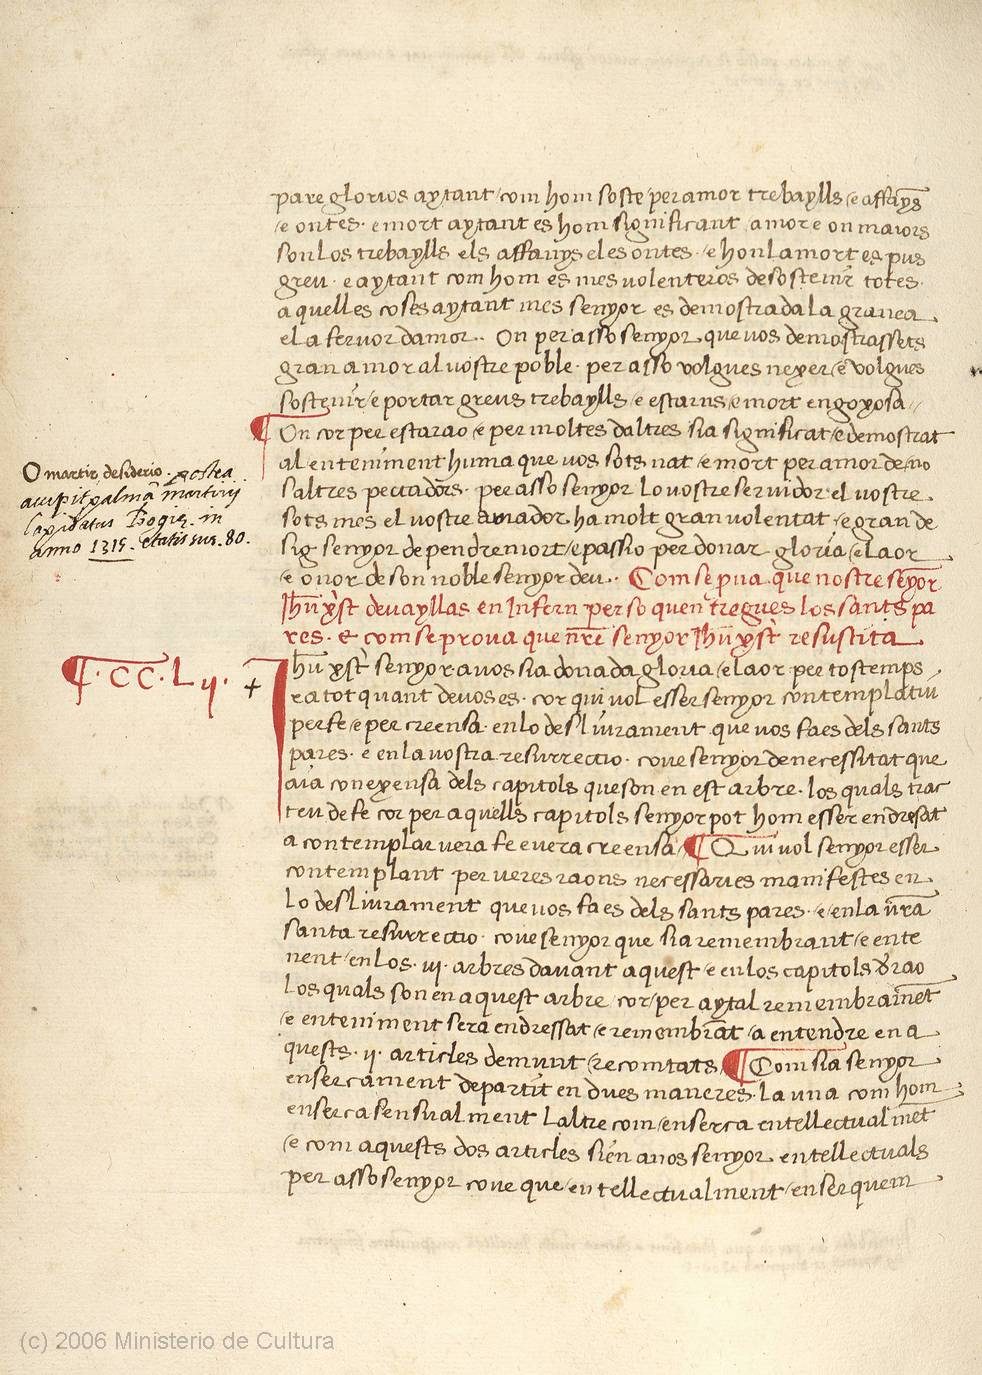 pare glorios aytant com hom soste per amor trebaylls e affāys
e ontes· e mort aytant es hom significant amor e on maiors
son los trebaylls els affanys e les ontes· e hon la mort es pus
greu· e aytant com hom es mes volenteros de sostenir totes·
aquelles coses aytant mes senyor es demostrada la granea
e la fervor damor·. On per asso senyor que vos demostrassets
gran amor al vostre poble· per asso volgues nexer e volgues
sostenir e portar greus trebaylls e estarns e mort engoxosa·
¶ On cor per estarao e per moltes daltres sia significat e demostrat
al enteniment huma que vos sots nat e mort per amor de no
saltres peccadors· per asso senyor lo vostre servidor el vostre
sots mes el vostre amador ha molt gran volentat e gran de
sig senyor de pendre mort e passio per donar gloria e laor
e onor de son noble senyor deu·. Com se pua que nostre senyor
Jhu xpst devayllas en infern per so quen tregues los sants pa
res· et com se prova que nre senyor Jhu xpst resuscita
O martir desiderio· postea
accipit palmā martirij
lapidatus Bogie in
anno 1315. etatis sue 80.
¶·CCLij· +
Jhu xpst senyor a vos sia donada gloria e laor per tostemps
ra tot quant de vos es· cor qui vol esser senyor contemplatiu
per fe e per creensa· en lo desliurament que vos faes dels sants
pares· e en la vostra resurreccio· cove senyor de necessitat que
aia conexensa dels capitols que son en est arbre· los quals trac
ten de fe cor per aquells capitols senyor pot hom esser endresat
a contemplar vera fe e vera creensa ¶ Qui vol senyor esser
contemplant per veres raons necessaries manifestes en
lo desliurament que vos faes dels sants pares· e en la vra
santa resurreccio· cove senyor que sia remembrant e ente
nent en los·iij·arbres davant aquest e en los capitols
los quals son en aquest arbre cor per aytal remembramēt
e enteniment sera endressat e remembrāt a entendre en a
quests·ij·articles demunt recomtats ¶ Com sia senyor
ensercament departit en dues maneres· la una com hom
enserca sensualment laltre com enserca entellectualmēt
e com aquests dos articles sien a nos senyor entellectuals
per asso senyor cove que entellectualment enserquem
(c) 2006 Ministerio de Cultura